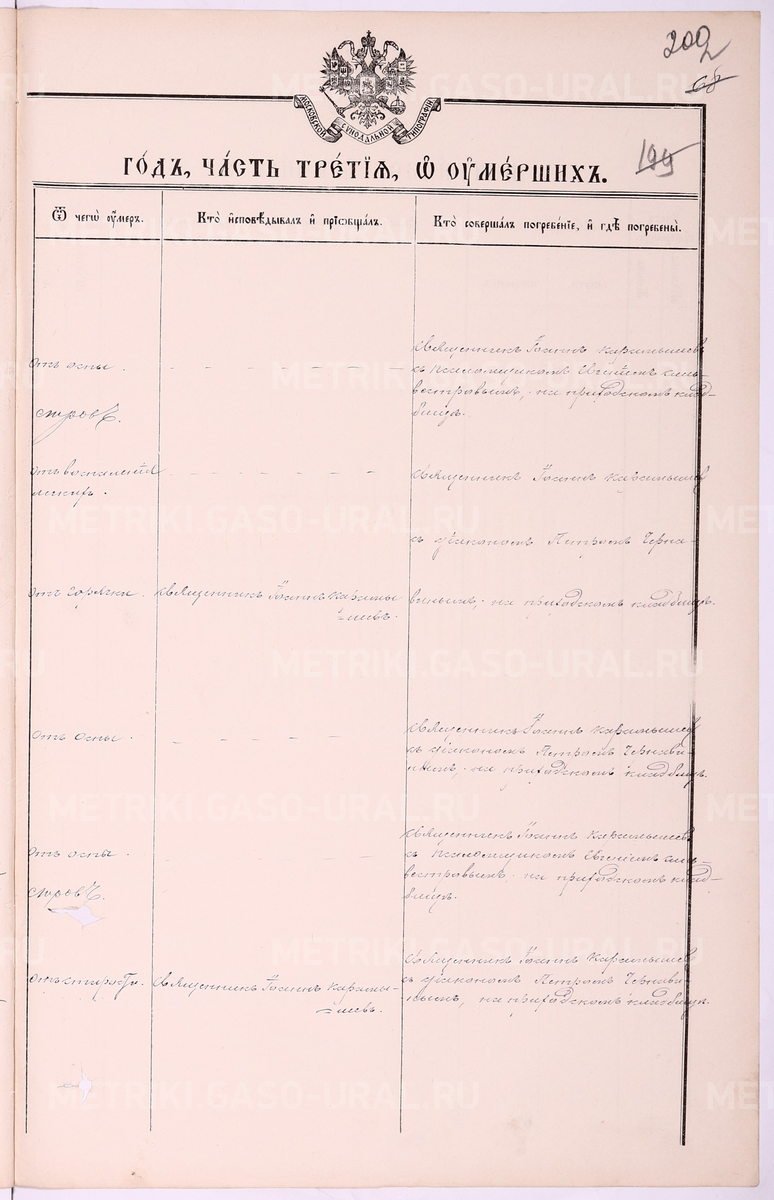 202
68
МОСКОВСКОЙ СѴНОДАЛЬНОЙ ТИПОГРАФІИ
199
ГО́ДЪ, ЧА́СТЬ ТРЕ́ТІѦ, Ѽ ОУ҆МЕ́РШИХЪ.
Ѿ чегѡ̀ оу҆́меръ.
Кто̀ и҆сповѣ́дывалъ и҆ прїѡбща́лъ.
Кто̀ соверша́лъ погребе́нїе, и҆ гдѣ̀ погребены̀.
отъ оспы.
священникъ Іоаннъ Карамышевъ
съ псаломщикомъ Евгеніемъ Силь-
вестровымъ, на приходскомъ клад-
бищѣ.
отъ воспаленія
легкихъ.
священникъ Іоаннъ Карамышев
съ діакономъ Петромъ Черна-
отъ горячки.
священникъ Іоаннъ Карамы-
=шевъ.
виным, на приходскомъ кладбищѣ.
отъ оспы.
священникъ Іоаннъ Карамышев
съ діакономъ Петромъ Чернави-
нымъ, на приходскомъ кладбищѣ.
отъ оспы.
священникъ Іоаннъ Карамышев
съ псаломщикомъ Евгеніемъ Силь-
вестровымъ, на приходскомъ клад-
бищѣ.
отъ старости.
священникъ Іоаннъ Карамы-
=шевъ.
священникъ Іоаннъ Карамышев
съ діакономъ Петромъ Чернави-
нымъ, на приходскомъ кладбищѣ.
METRIKI.GASO-URAL.RU